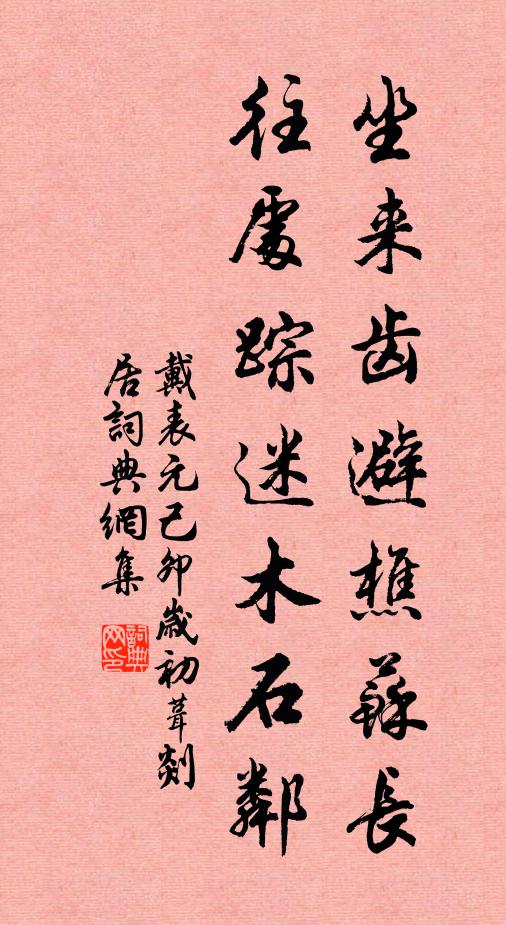 坐来齿避樵蘇長
往處踪迷木石鄰
戴表元己卯歲初葺剡
居詞典網集
詞典网印